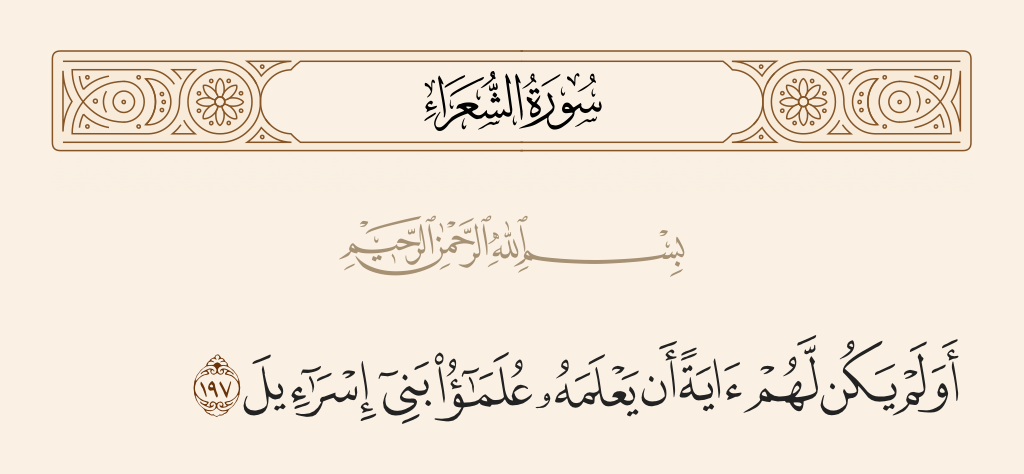 سُورَةُ الشُّعَرَاءِ
بِسْمِ ٱللَّهِ ٱلرَّحْمَٰنِ ٱلرَّحِيمِ
أَوَلَمْ يَكُن لَّهُمْ ءَايَةً أَن يَعْلَمَهُۥ عُلَمَـٰٓؤُا۟ بَنِىٓ إِسْرَٰٓءِيلَ ١٩٧